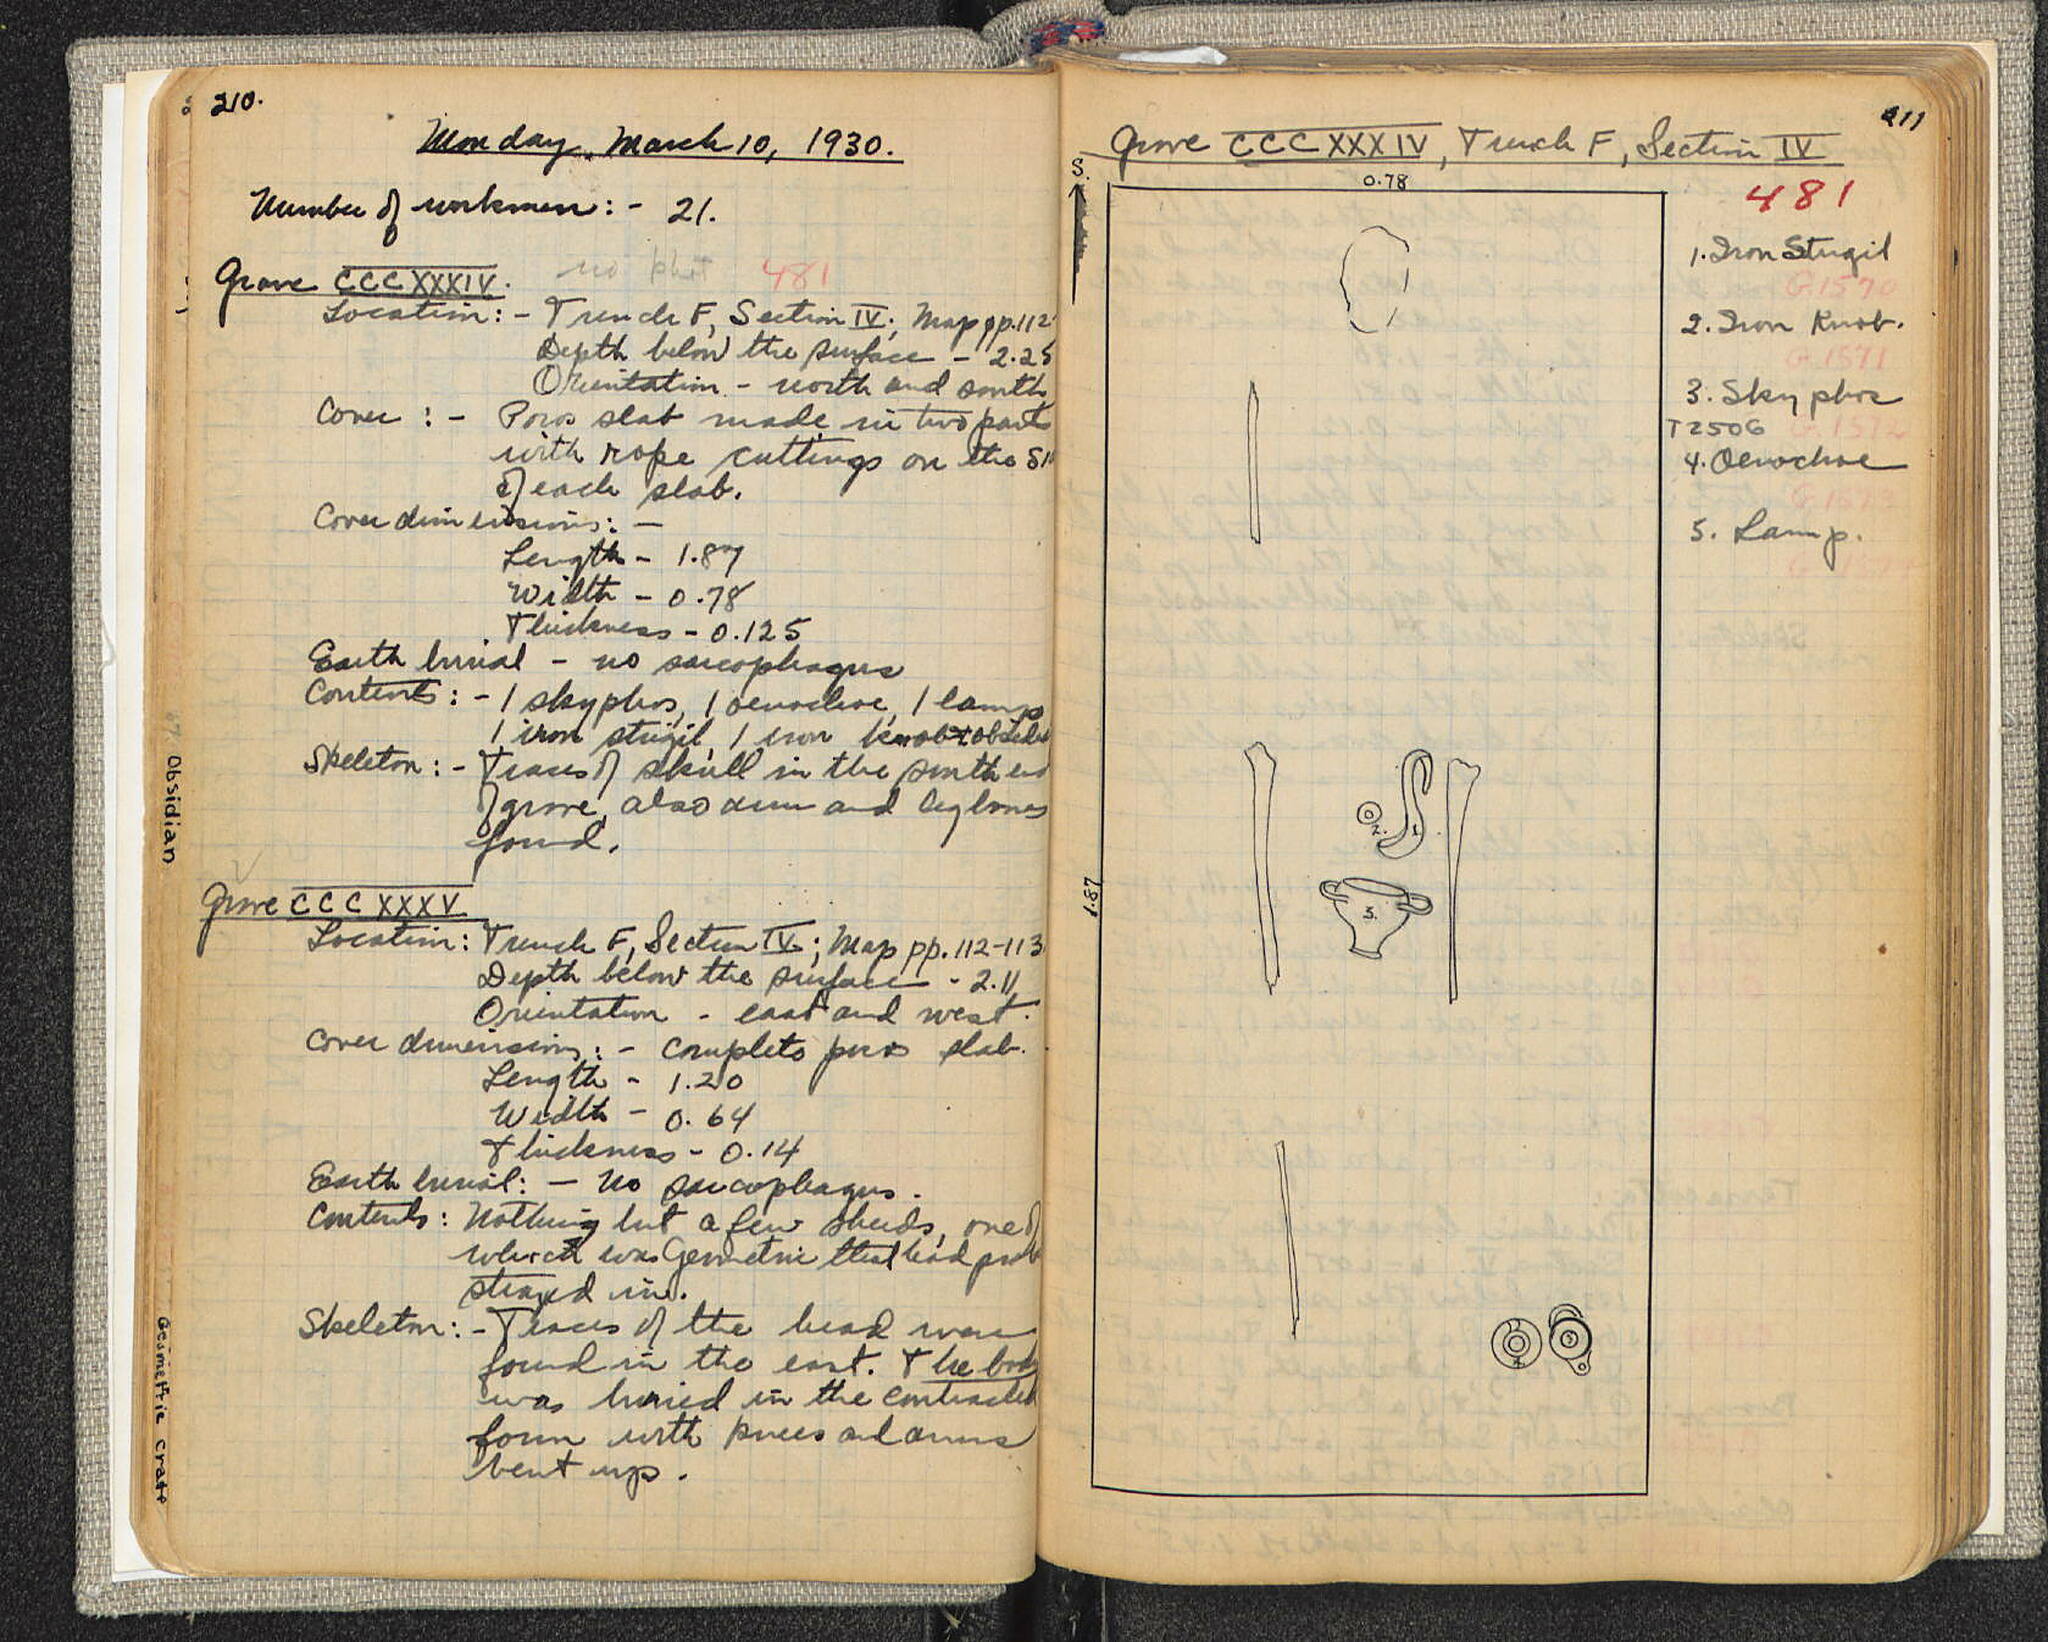 210.
Monday, March 10, 1930.
Number of workmen: - 21.
Grave CCCXXXIV. no phot 481
Location: - Trench F, Section IV; Map pp. 112
Depth below the surface - 2.25
Orientation - north and south
Cover: - Poros slab made in two parts
with rope cuttings on the
of each slab.
Cover dimensions: -
Length - 1.87
Width - 0.78
Thickness - 0.125
Earth burial - no sarcophagus
Contents: - 1 skyphos, 1 oenochoe, 1 lamp
1 iron strigil, 1 iron knob
Skeleton: - Traces of skull in the south end
of grave, also arm and leg bones
found.
Obsidian
Grave CCCXXXV
Location: Trench F, Section IV; Map pp. 112-113
Depth below the surface - 2.11
Orientation - east and west.
Cover dimensions: - complete poros slab.
Length - 1.20
Width - 0.64
Thickness - 0.14
Earth burial: - No sarcophagus.
Contents: Nothing but a few sherds, one of
which was Geometric that had prob
strayed in.
Skeleton: - Traces of the head were
found in the east. The body
was buried in the contracted
form with knees and arms
bent up.
Geometric
211
Grave CCCXXXIV, Trench F, Section IV
S.
0.78
1.87
2.
1.
3.
4
5
481
1. Iron Strigil
G.1570
2. Iron Knob.
G.1571
3. Skyphos
T2506 G.1572
4. Oenochoe
G.1573
5. Lamp.
G.1574